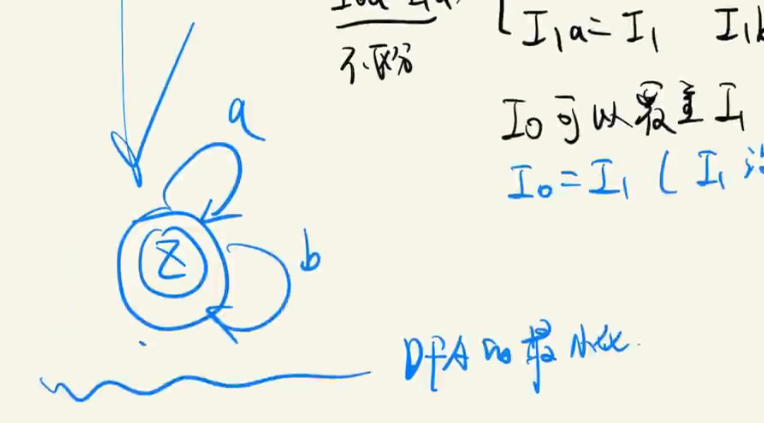 不区分
I₁a = I₁ I₁b
I₀可以覆盖I₁
I₀ = I₁ ( I₁
a
Z
b
DFA的最小化